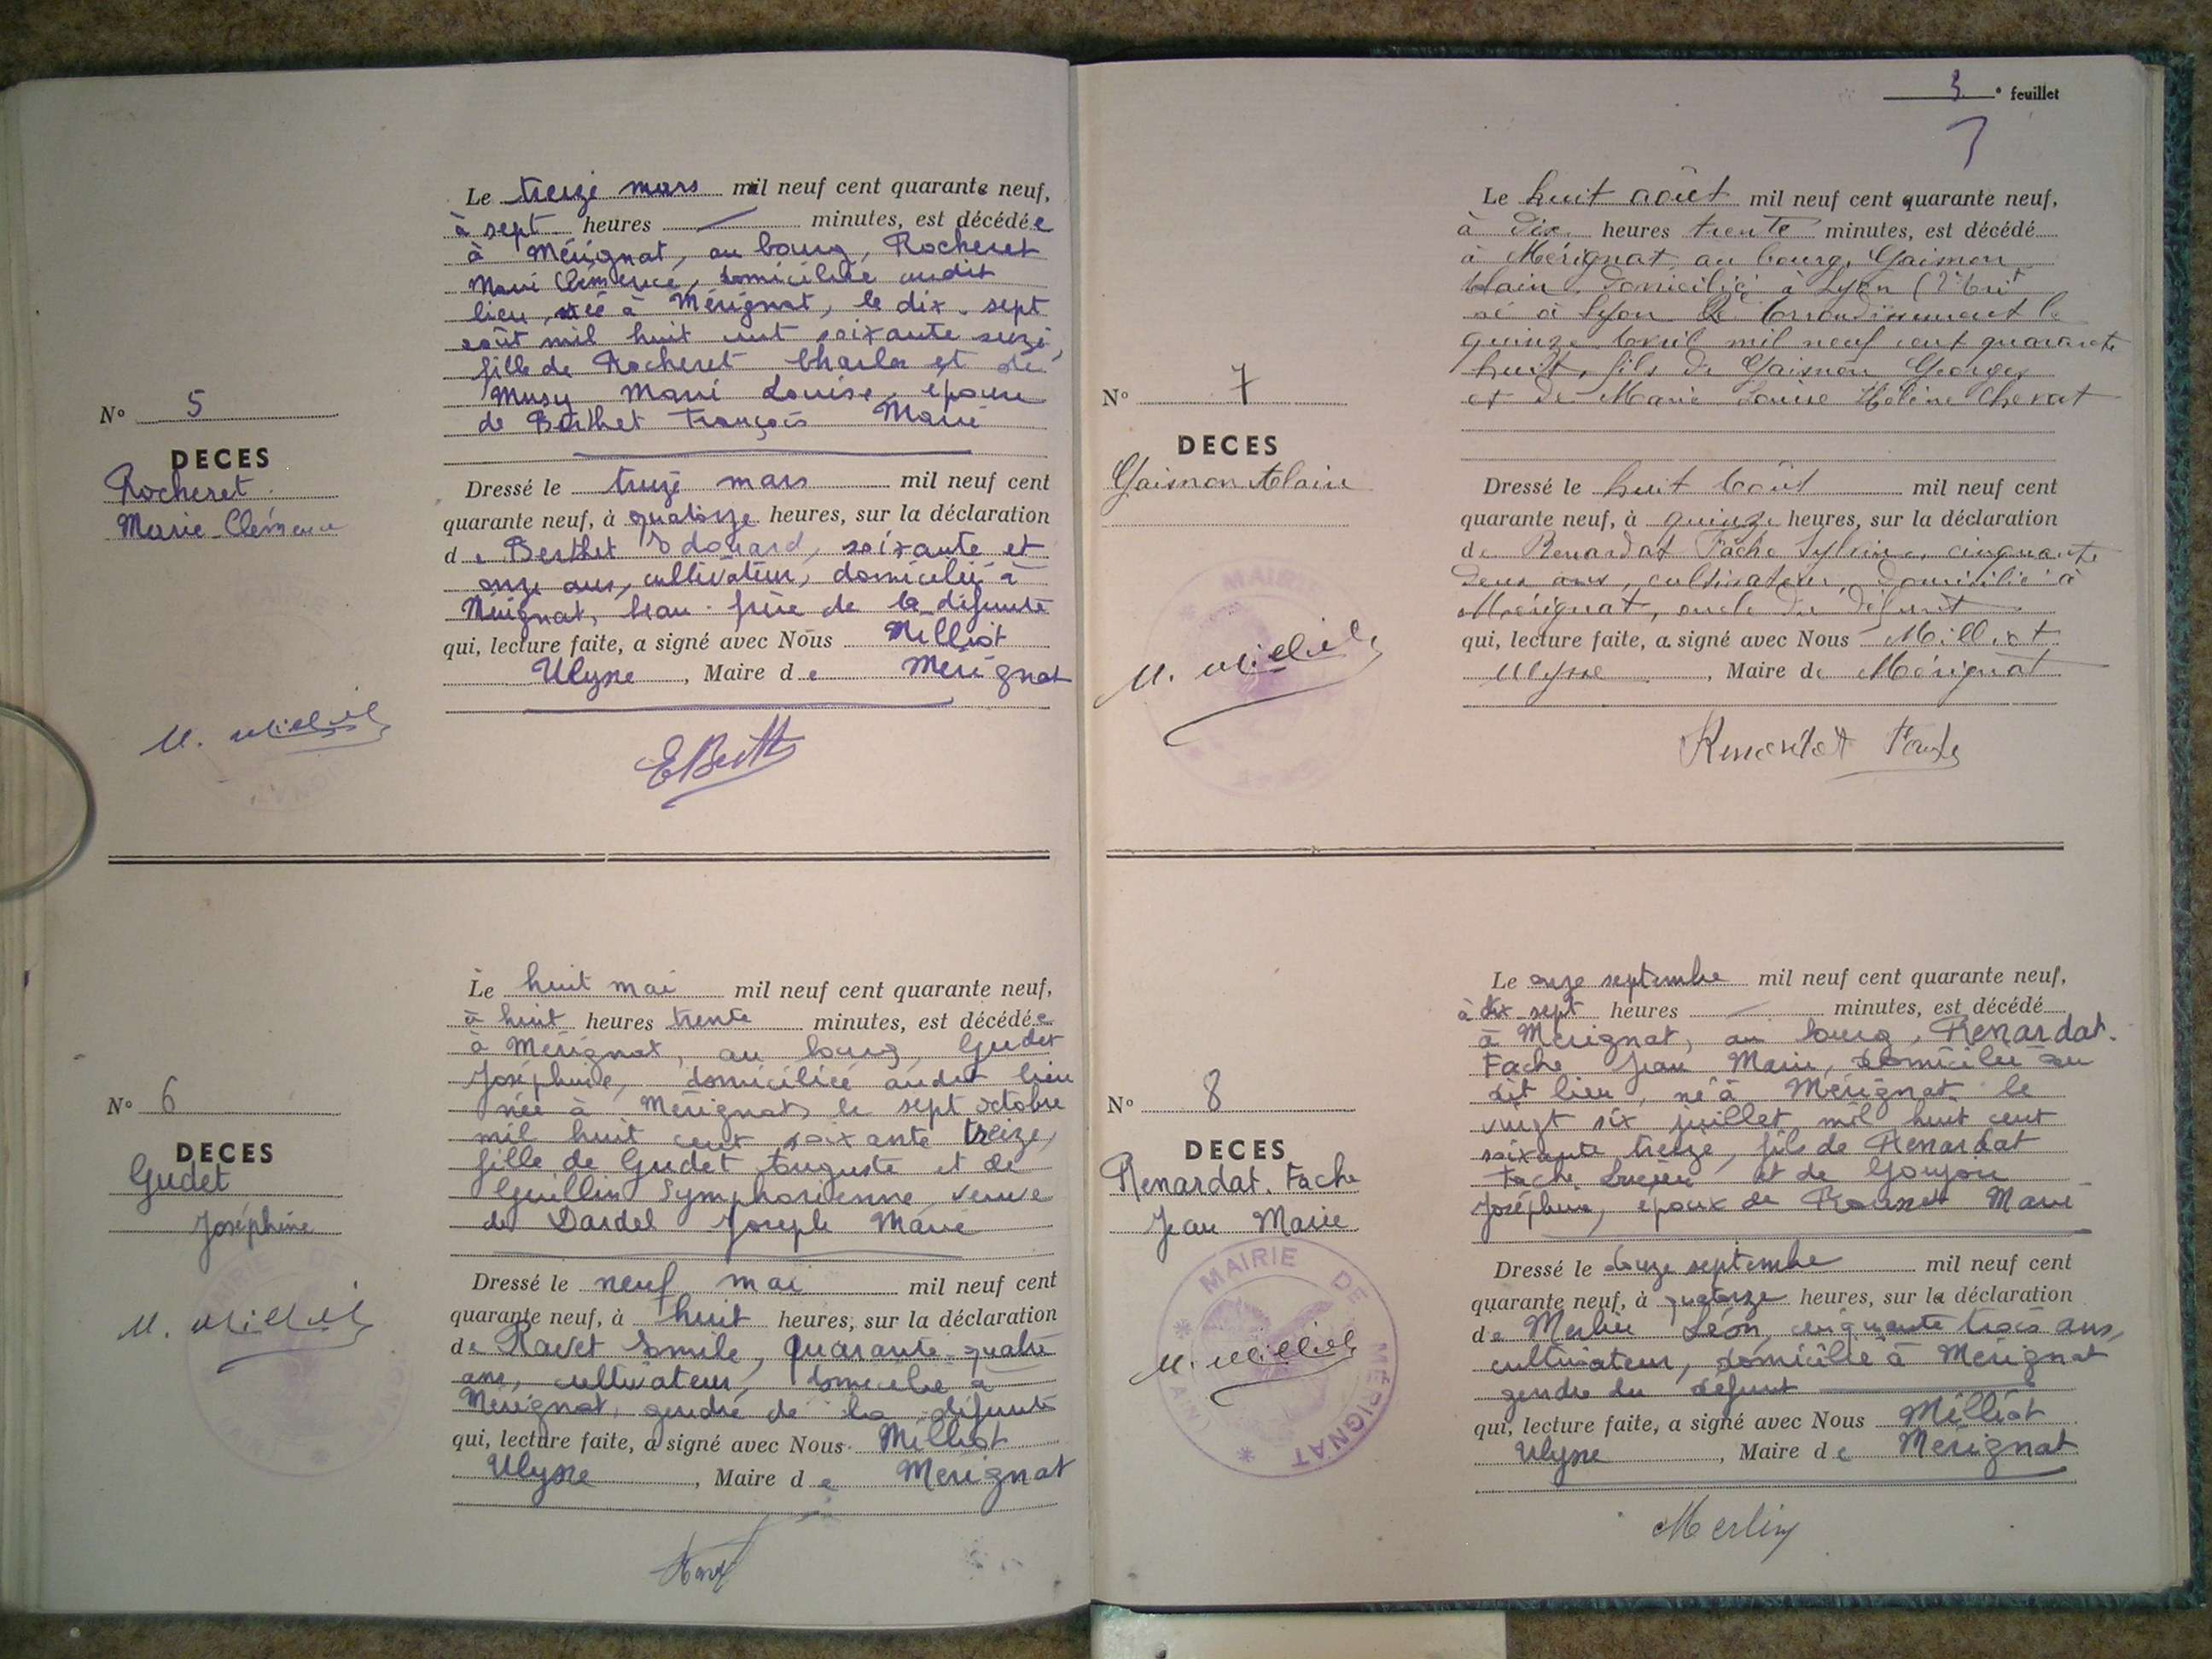 Le treize mars mil neuf cent quarante neuf,
à sept heures — minutes, est décédée
à Mérignat, au bourg, Rocheret
Marie Clémence, domiciliée audit
lieu, née à Mérignat, le dix-sept
août mil huit cent soixante seize,
fille de Rocheret Charles et de
Musy Marie Louise, épouse
de Berthet François Marie
N° 5
DECES
Rocheret
Marie-Clémence
Dressé le treize mars mil neuf cent
quarante neuf, à quatorze heures, sur la déclaration
de Berthet Edouard, soixante et
onze ans, cultivateur, domicilié à
Mérignat, beau-frère de la défunte
qui, lecture faite, a signé avec Nous Milliat
Ulysse, Maire de Mérignat
Le huit mai mil neuf cent quarante neuf,
à huit heures trente minutes, est décédée
à Mérignat, au bourg, Gudet
Joséphine, domiciliée audit lieu
née à Mérignat le sept octobre
mil huit cent soixante treize,
fille de Gudet Auguste et de
Guillin Symphorienne, veuve
de Dardel Joseph Marie
N° 6
DECES
Gudet
Joséphine
Dressé le neuf mai mil neuf cent
quarante neuf, à huit heures, sur la déclaration
de Ravet Emile, quarante-quatre
ans, cultivateur, domicilié à
Mérignat, gendre de la défunte
qui, lecture faite, a signé avec Nous Milliat
Ulysse, Maire de Mérignat
3.e feuillet
Le huit août mil neuf cent quarante neuf,
à dix heures trente minutes, est décédé
à Mérignat, au bourg, Gaimon
Alain domicilié à Lyon
né à Lyon arrondissement le
quinze Avril mil neuf cent quarante
huit, fils de Gaimon Georges
et de Marie Louise Hélène Chevat
N° 7
DECES
Gaimon Alain
Dressé le huit Août mil neuf cent
quarante neuf, à quinze heures, sur la déclaration
de Renardat Fache Sylvain, cinquante
deux ans, cultivateur, domicilié à
Mérignat, oncle du défunt
qui, lecture faite, a signé avec Nous Milliat
Ulysse, Maire de Mérignat
Renardat Fache
Le onze septembre mil neuf cent quarante neuf,
à dix-sept heures — minutes, est décédé
à Mérignat, au bourg, Renardat-
Fache Jean Marie, domicilié au
dit lieu, né à Mérignat le
vingt six juillet mil huit cent
soixante treize, fils de Renardat
Fache et de Goujon
Joséphine, époux de Marie
N° 8
DECES
Renardat-Fache
Jean Marie
MAIRIE DE MÉRIGNAT
(AIN)
Dressé le douze septembre mil neuf cent
quarante neuf, à quatorze heures, sur la déclaration
de Merlin Léon, cinquante trois ans,
cultivateur, domicilié à Mérignat
gendre du défunt
qui, lecture faite, a signé avec Nous Milliat
Ulysse, Maire de Mérignat
Merlin